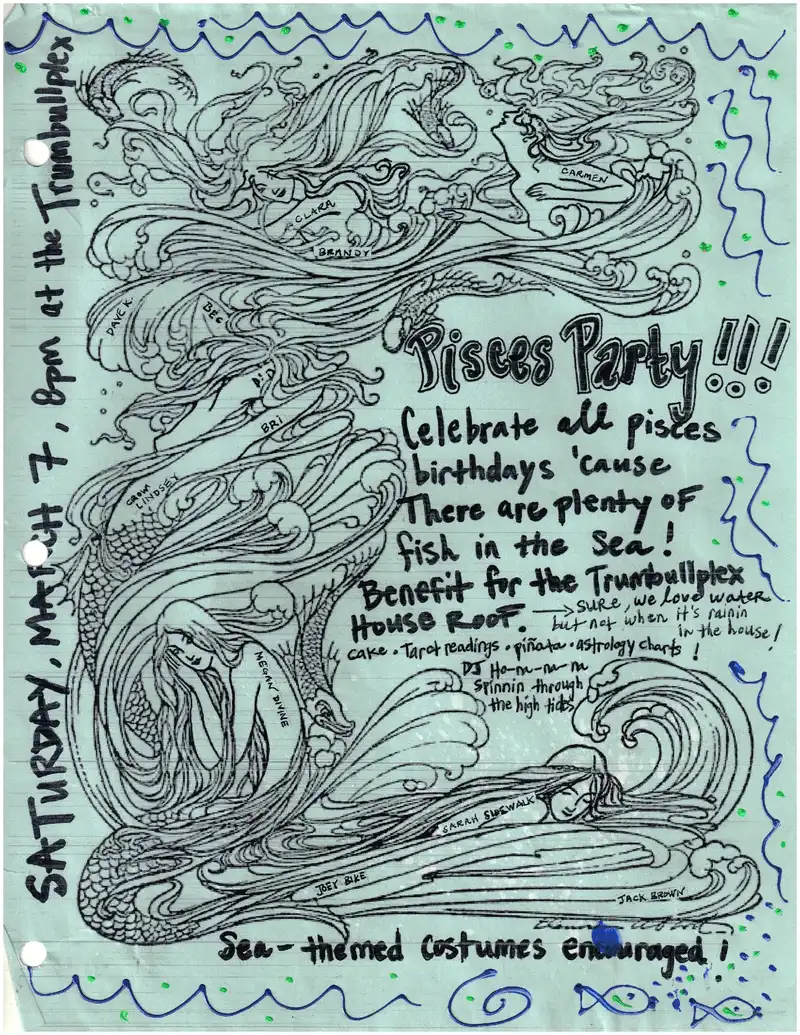 SATURDAY, MARCH 7, 8pm at the Trumbullplex
CLARA
CARMEN
BRANDY
DAVE K.
BEC
Pisces Party!!!
Celebrate all pisces
birthdays 'cause
There are plenty of
fish in the sea!
Benefit for the Trumbullplex
House Roof. → sure, we love water
but not when it's rainin
in the house!
cake • Tarot readings • piñata • astrology charts !
DJ Ho-m-m-m
spinnin through
the high tides
BRI
CROW
LINDSEY
MEGAN DIVINE
SARAH SIDEWALK
JOEY BIKE
JACK BROWN
Sea-themed costumes encouraged!